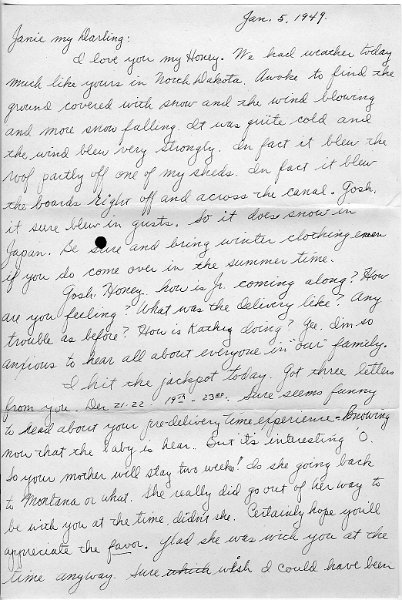 Jan. 5, 1949.
Janie my Darling:
I love you my Honey. We had weather today
much like yours in North Dakota. Awoke to find the
ground covered with snow and the wind blowing
and more snow falling. It was quite cold and
the wind blew very strongly. In fact it blew the
roof partly off one of my sheds. In fact it blew
the boards right off and across the canal. Gosh,
it sure blew in gusts. So it does snow in
Japan. Be sure and bring winter clothing even
if you do come over in the summer time.
Gosh Honey how is Jr. coming along? How
are you feeling? What was the delivery like? Any
trouble as before? How is Kathy doing? Gee, I'm so
anxious to hear all about everyone in "our" family.
I hit the jackpot today. Got three letters
from you. Dec 21-22 19th - 23rd. Sure seems funny
to read about your pre-delivery time experience - knowing
now that the baby is hear. But it's interesting O.
So your mother will stay two weeks? Is she going back
to Montana or what. She really did go out of her way to
be with you at the time didn't she. Certainly hope you'll
appreciate the favor. Glad she was with you at the
time anyway. Sure which wish I could have been